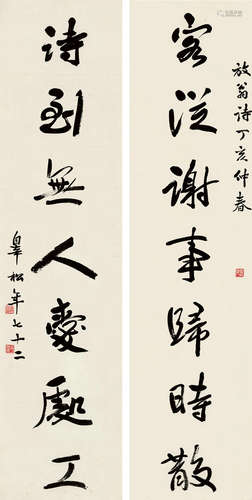 放翁詩丁亥仲春
客從謝事歸時散
詩到無人愛處工
皋松年七十二